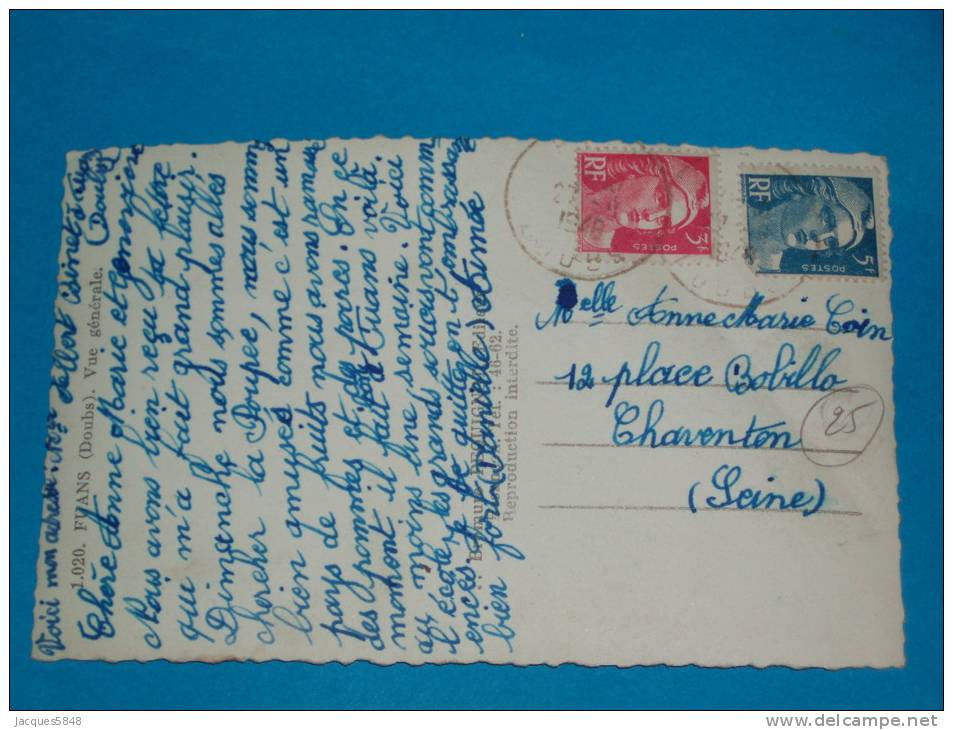 Voici mon adresse:
(Doubs)
1.020. FUANS (Doubs). Vue générale.
Chère Anne Marie et
Nous avons bien reçu ta lettre
qui m'a fait grand plaisir.
Dimanche nous sommes allés
chercher la Poupée, nous somm
bien amusés comme c'est un
pays de fruits nous avons ramené
des pommes et des poires. En ce
moment il fait à Fuans voilà
au moins une semaine. Voici
l'école les grands soucis vont comm
encés. Je te quitte en t'embrassant
bien fort Danielle
Reproduction interdite.
Melle Anne Marie Coin
12 place Bobillo
Charenton
(Seine)
25
RF
POSTES
3f
RF
POSTES
5f
Jacques5848
www.delcampe.net